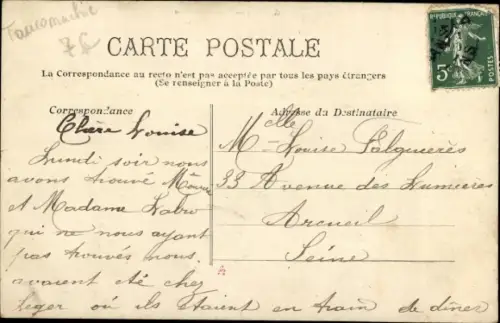 Tauromachie
7€
CARTE POSTALE
La Correspondance au recto n'est pas acceptée par tous les pays étrangers
(Se renseigner à la Poste)
Correspondance
Adresse du Destinataire
RÉPUBLIQUE FRANÇAISE
5c
POSTES
Chère Louise
Lundi soir nous
avons trouvé
et Madame Labro
qui ne nous ayant
pas trouvés nous
avaient été chez
Léger où ils étaient en train de dîner
Melle Louise Falguerès
33 Avenue des Lumières
Arcueil
Seine
A